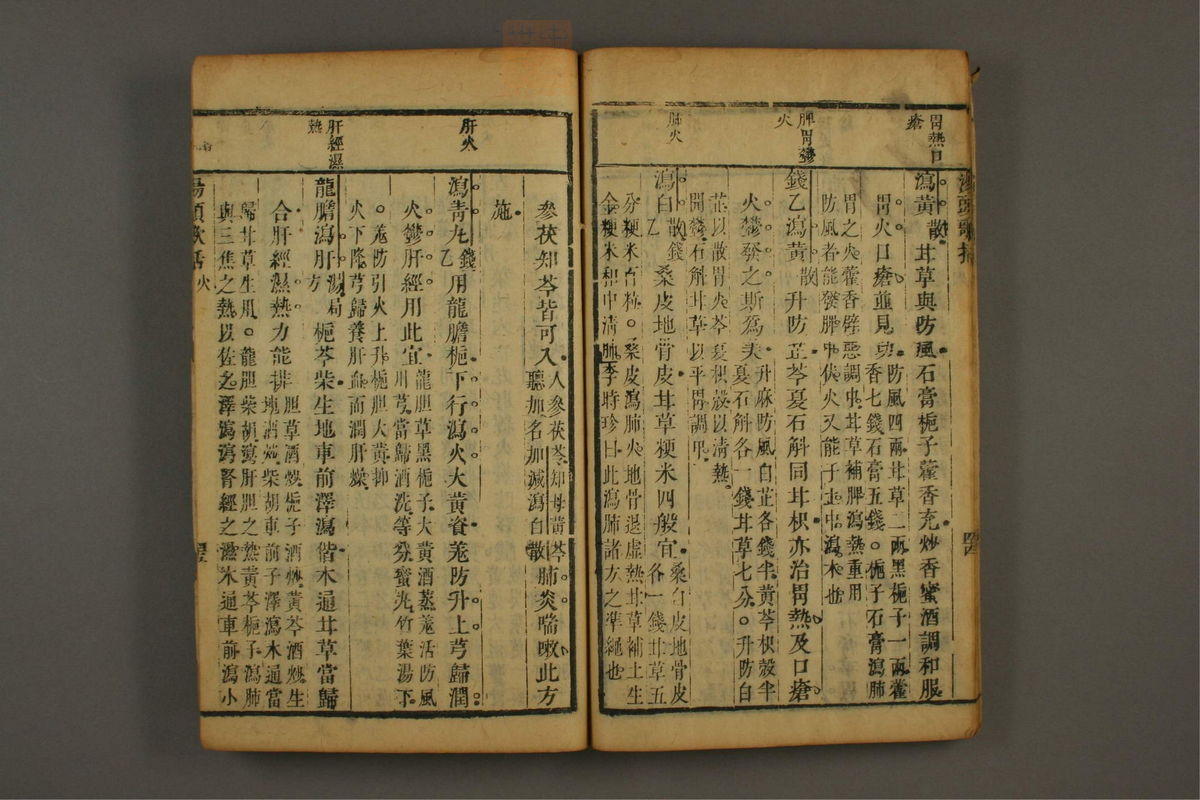 湯頭歌括
四四
胃熱口瘡
瀉黃散甘草與防風石膏梔子藿香充炒香蜜酒調和服
胃火口瘡並見功
防風四兩甘草二兩黑梔子一兩藿
香七錢石膏五錢。梔子石膏瀉肺
胃之火藿香辟惡調中甘草補脾瀉熱重用
防風者能發脾中伏火又能于土中瀉木也
脾胃鬱火
錢乙瀉黃散升防芷芩夏石斛同甘枳亦治胃熱及口瘡
火鬱發之斯爲美
升麻防風白芷各錢半黃芩枳殼半
夏石斛各一錢甘草七分。升防白
芷以散胃火芩夏枳殼以清熱
開鬱石斛甘草以平胃調中。
肺火
瀉白散錢乙桑皮地骨皮甘草粳米四般宜
桑白皮地骨皮
各一錢甘草五
分粳米百粒。桑皮瀉肺火地骨退虛熱甘草補土生
金粳米和中清肺李時珍曰此瀉肺諸方之準繩也
參茯知芩皆可入
人參茯苓知母黃芩
聽加名加減瀉白散
肺炎喘嗽此方
施
肝火
瀉青丸錢乙用龍膽梔下行瀉火大黃資羌防升上芎歸潤
火鬱肝經用此宜
龍胆草黑梔子大黃酒蒸羌活防風
川芎當歸酒洗等分蜜丸竹葉湯下
。羌防引火上升梔胆大黃抑
火下降芎歸養肝血而潤肝燥
肝經濕熱
龍膽瀉肝湯局方梔芩柴生地車前澤瀉偕木通甘草當歸
合肝經濕熱力能排
胆草酒炒梔子酒炒黃芩酒炒生
地酒炒柴胡車前子澤瀉木通當
歸甘草生用。龍胆柴胡瀉肝胆之熱黃芩梔子瀉肺
與三焦之熱以佐之澤瀉瀉腎經之濕木通車前瀉小
湯頭歌括 火